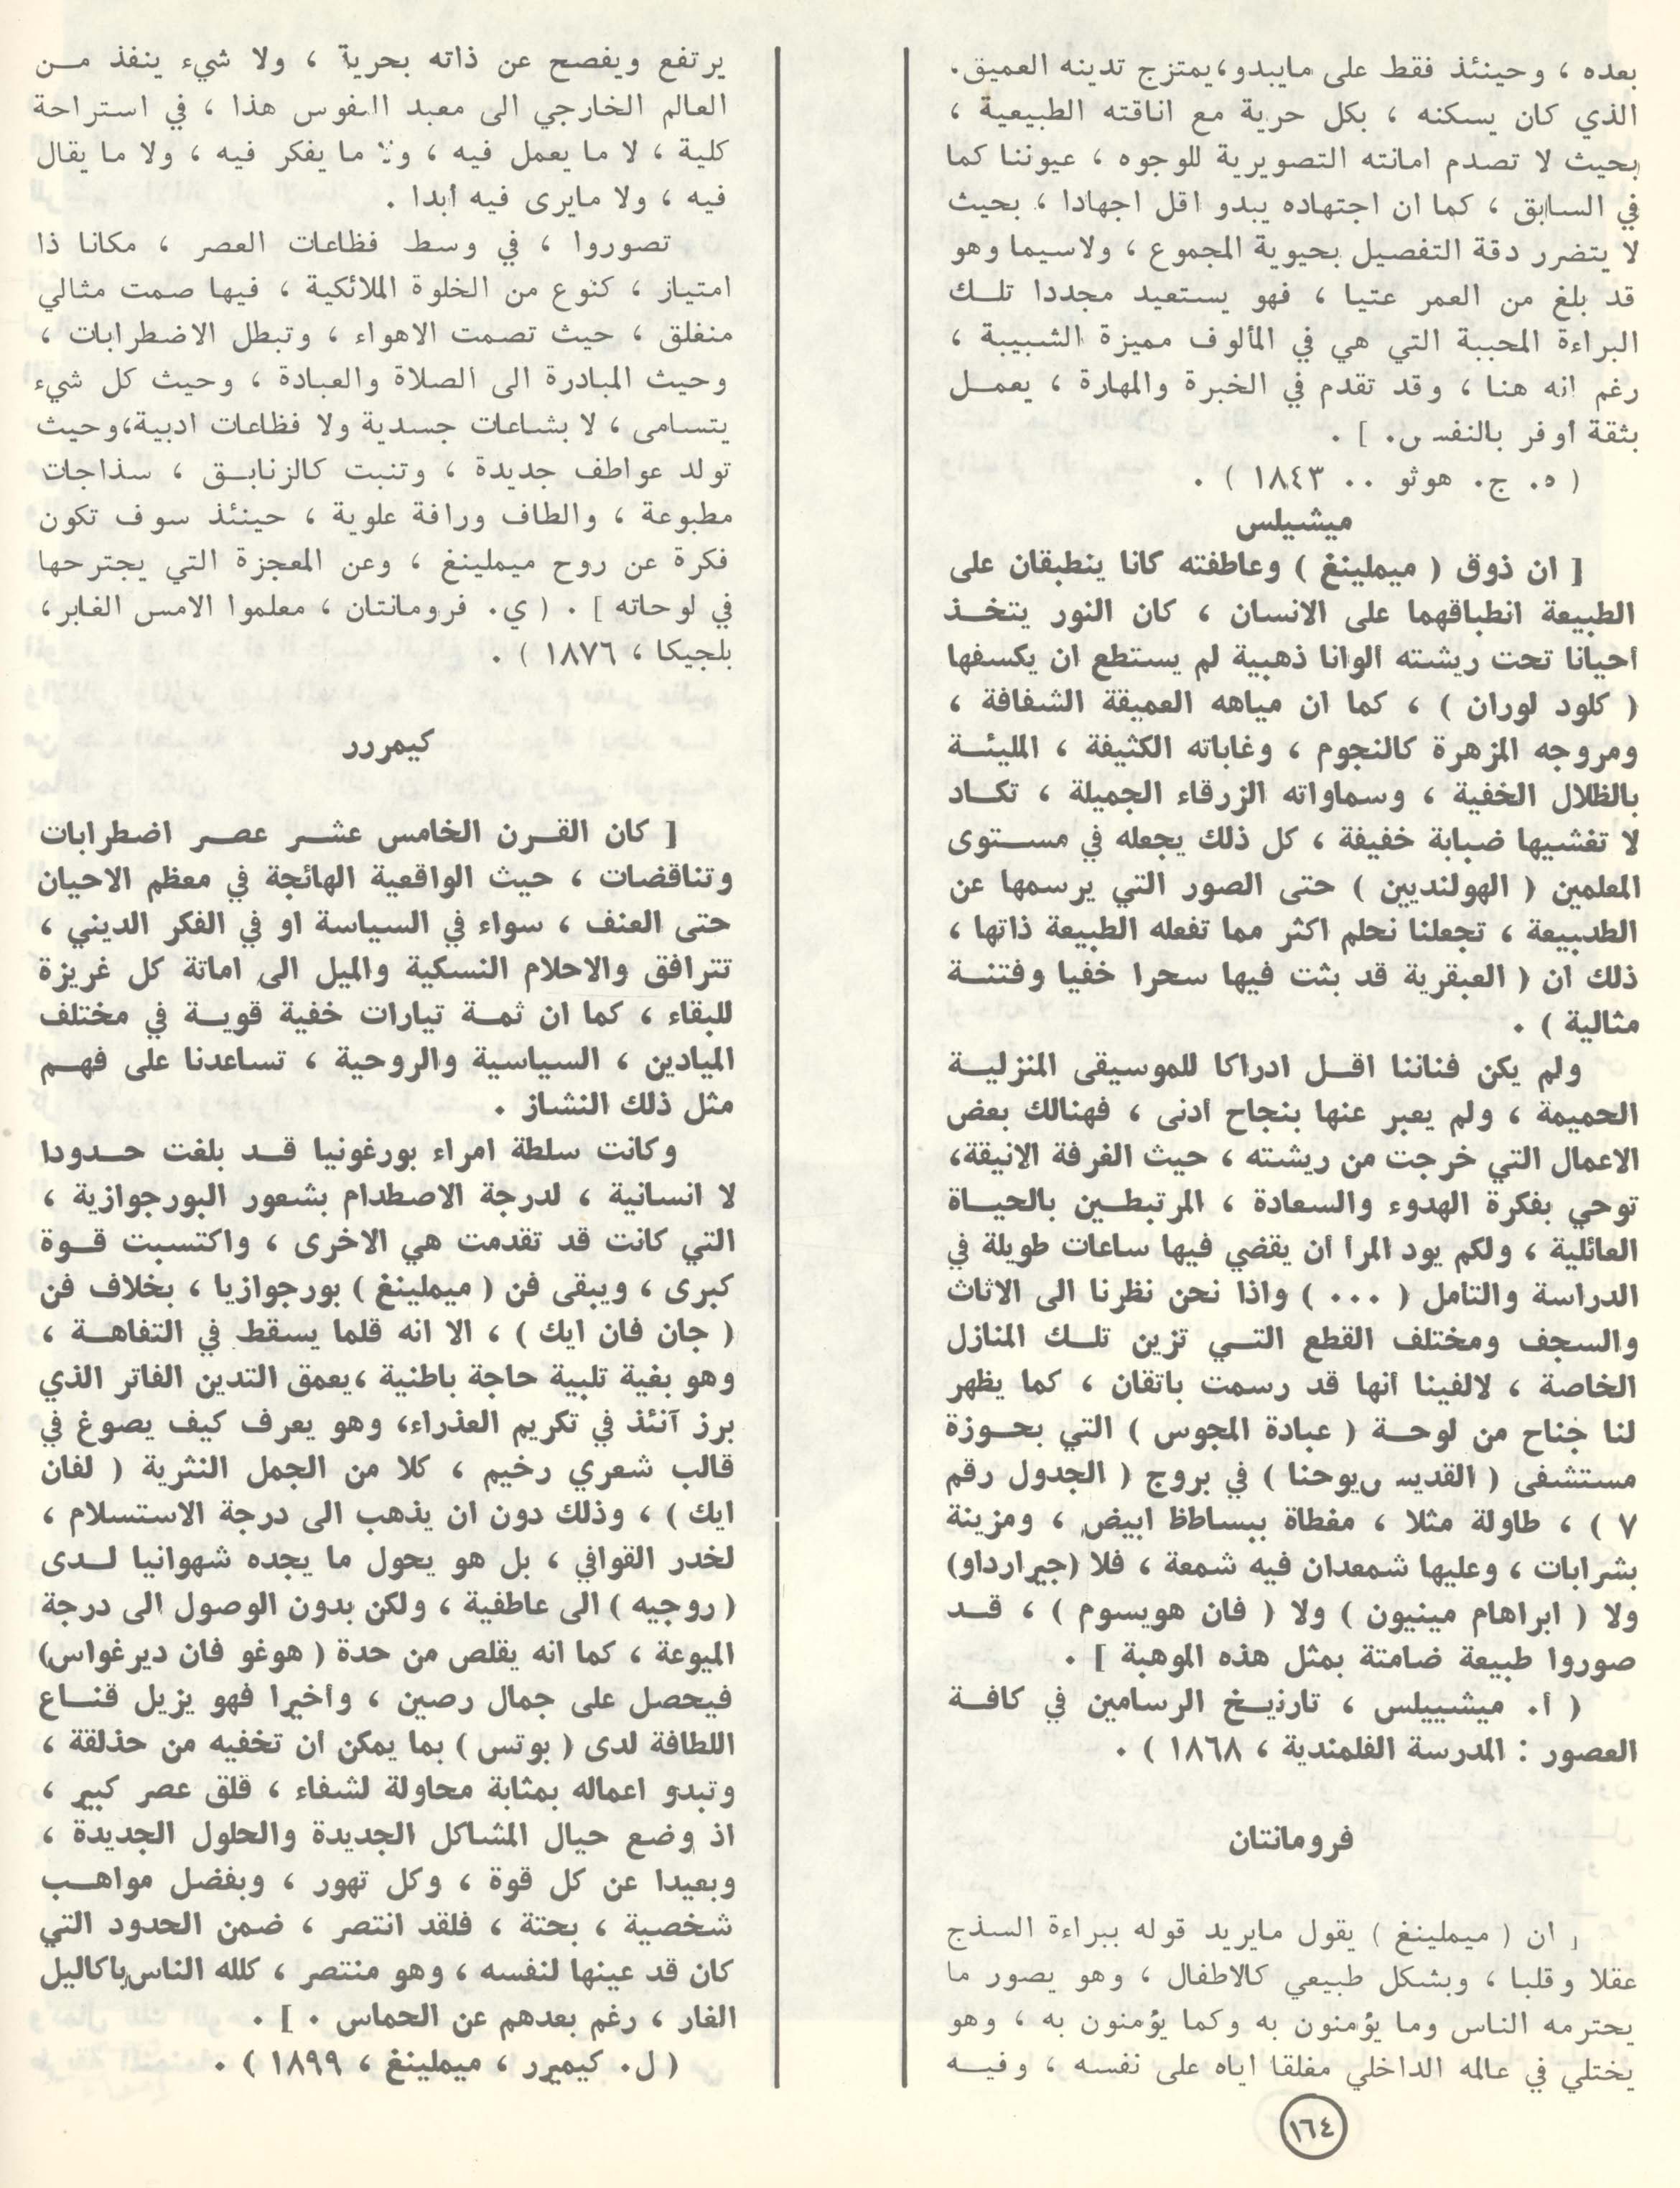 بعده ، وحينئذ فقط على مايبدو،يمتزج تدينه العميق.
الذي كان يسكنه ، بكل حرية مع اناقته الطبيعية ،
بحيث لا تصدم امانته التصويرية للوجوه ، عيوننا كما
في السابق ، كما ان اجتهاده يبدو اقل اجهادا ، بحيث
لا يتضرر دقة التفصيل بحيوية المجموع ، ولاسيما وهو
قد بلغ من العمر عتيا ، فهو يستعيد مجددا تلك
البراءة المحببة التي هي في المألوف مميزة الشبيبة ،
رغم انه هنا ، وقد تقدم في الخبرة والمهارة ، يعمل
بثقة أوفر بالنفس. ] .
( ه. ج. هوثو .. ١٨٤٣ ) .
ميشيلس
[ ان ذوق ( ميملينغ ) وعاطفته كانا ينطبقان على
الطبيعة انطباقهما على الانسان ، كان النور يتخذ
أحيانا تحت ريشته ألوانا ذهبية لم يستطع ان يكسفها
( كلود لوران ) ، كما ان مياهه العميقة الشفافة ،
ومروجه المزهرة كالنجوم ، وغاباته الكثيفة ، المليئة
بالظلال الخفية ، وسماواته الزرقاء الجميلة ، تكاد
لا تغشيها ضبابة خفيفة ، كل ذلك يجعله في مستوى
المعلمين ( الهولنديين ) حتى الصور التي يرسمها عن
الطبيعة ، تجعلنا نحلم اكثر مما تفعله الطبيعة ذاتها ،
ذلك ان ( العبقرية قد بثت فيها سحرا خفيا وفتنة
مثالية ) .
ولم يكن فناننا اقل ادراكا للموسيقى المنزلية
الحميمة ، ولم يعبر عنها بنجاح أدنى ، فهنالك بعض
الاعمال التي خرجت من ريشته ، حيث الغرفة الانيقة،
توحي بفكرة الهدوء والسعادة ، المرتبطين بالحياة
العائلية ، ولكم يود المرأ أن يقضي فيها ساعات طويلة في
الدراسة والتامل ( ... ) واذا نحن نظرنا الى الاثاث
والسجف ومختلف القطع التي تزين تلك المنازل
الخاصة ، لالفينا أنها قد رسمت باتقان ، كما يظهر
لنا جناح من لوحة ( عبادة المجوس ) التي بحوزة
مستشفى ( القديس يوحنا ) في بروج ( الجدول رقم
٧ ) ، طاولة مثلا ، مغطاة ببساطظ ابيض ، ومزينة
بشرابات ، وعليها شمعدان فيه شمعة ، فلا (جيرارداو)
ولا ( ابراهام مينيون ) ولا ( فان هويسوم ) ، قد
صوروا طبيعة ضامتة بمثل هذه الموهبة ] .
( أ. ميشييلس ، تاريخ الرسامين في كافة
العصور : المدرسة الفلمندية ، ١٨٦٨ ) .
فرومانتان
[ ان ( ميملينغ ) يقول مايريد قوله ببراءة السذج
عقلا وقلبا ، وبشكل طبيعي كالاطفال ، وهو يصور ما
يحترمه الناس وما يؤمنون به وكما يؤمنون به ، وهو
يختلي في عالمه الداخلي مغلقا اياه على نفسه ، وفيه
يرتفع ويفصح عن ذاته بحرية ، ولا شيء ينفذ من
العالم الخارجي الى معبد النفوس هذا ، في استراحة
كلية ، لا ما يعمل فيه ، ولا ما يفكر فيه ، ولا ما يقال
فيه ، ولا مايرى فيه أبدا .
تصوروا ، في وسط فظاعات العصر ، مكانا ذا
امتياز ، كنوع من الخلوة الملائكية ، فيها صمت مثالي
منغلق ، حيث تصمت الاهواء ، وتبطل الاضطرابات ،
وحيث المبادرة الى الصلاة والعبادة ، وحيث كل شيء
يتسامى ، لا بشاعات جسدية ولا فظاعات ادبية،وحيث
تولد عواطف جديدة ، وتنبت كالزنابق ، سذاجات
مطبوعة ، والطاف ورافة علوية ، حينئذ سوف تكون
فكرة عن روح ميملينغ ، وعن المعجزة التي يجترحها
في لوحاته ] . ( ي. فرومانتان ، معلموا الامس الغابر،
بلجيكا ، ١٨٧٦ ) .
كيمررر
[ كان القرن الخامس عشر عصر اضطرابات
وتناقضات ، حيث الواقعية الهائجة في معظم الاحيان
حتى العنف ، سواء في السياسة او في الفكر الديني ،
تترافق والاحلام النسكية والميل الى اماتة كل غريزة
للبقاء ، كما ان ثمة تيارات خفية قوية في مختلف
الميادين ، السياسية والروحية ، تساعدنا على فهم
مثل ذلك النشاز .
وكانت سلطة امراء بورغونيا قد بلغت حدودا
لا انسانية ، لدرجة الاصطدام بشعور البورجوازية ،
التي كانت قد تقدمت هي الاخرى ، واكتسبت قوة
كبرى ، ويبقى فن ( ميملينغ ) بورجوازيا ، بخلاف فن
( جان فان ايك ) ، الا انه قلما يسقط في التفاهة ،
وهو بغية تلبية حاجة باطنية ،يعمق التدين الفاتر الذي
برز آنئذ في تكريم العذراء، وهو يعرف كيف يصوغ في
قالب شعري رخيم ، كلا من الجمل النثرية ( لفان
ايك ) ، وذلك دون ان يذهب الى درجة الاستسلام ،
لخدر القوافي ، بل هو يحول ما يجده شهوانيا لدى
( روجيه ) الى عاطفية ، ولكن بدون الوصول الى درجة
الميوعة ، كما انه يقلص من حدة ( هوغو فان ديرغواس)
فيحصل على جمال رصين ، وأخيرا فهو يزيل قناع
اللطافة لدى ( بوتس ) بما يمكن ان تخفيه من حذلقة ،
وتبدو اعماله بمثابة محاولة لشفاء ، قلق عصر كبير ،
اذ وضع حيال المشاكل الجديدة والحلول الجديدة ،
وبعيدا عن كل قوة ، وكل تهور ، وبفضل مواهب
شخصية ، بحتة ، فلقد انتصر ، ضمن الحدود التي
كان قد عينها لنفسه ، وهو منتصر ، كلله الناس باكاليل
الغار ، رغم بعدهم عن الحماس . ] .
( ل. كيميرر ، ميملينغ ، ١٨٩٩ ) .
١٦٤